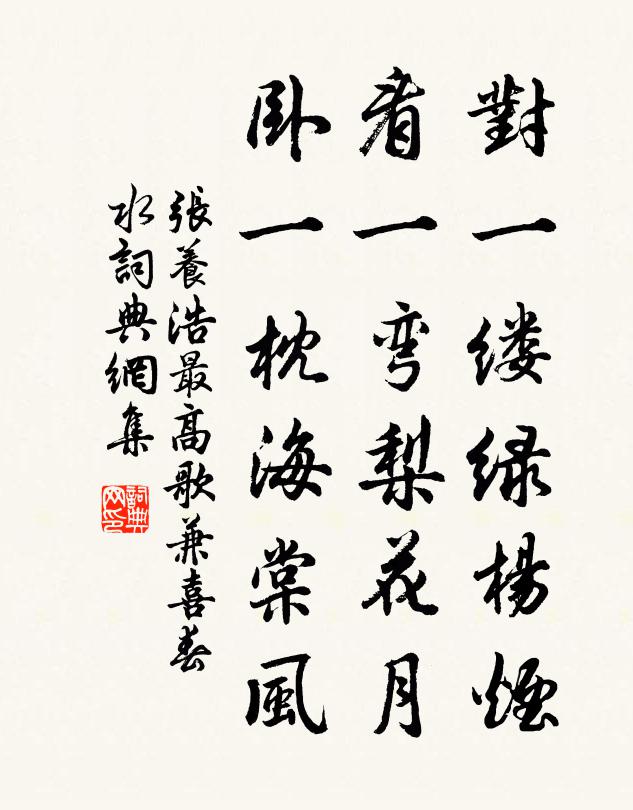 對一缕绿楊煙
看一弯梨花月
卧一枕海棠風
張養浩最高歌兼喜春
水詞典網集
詞典
网印